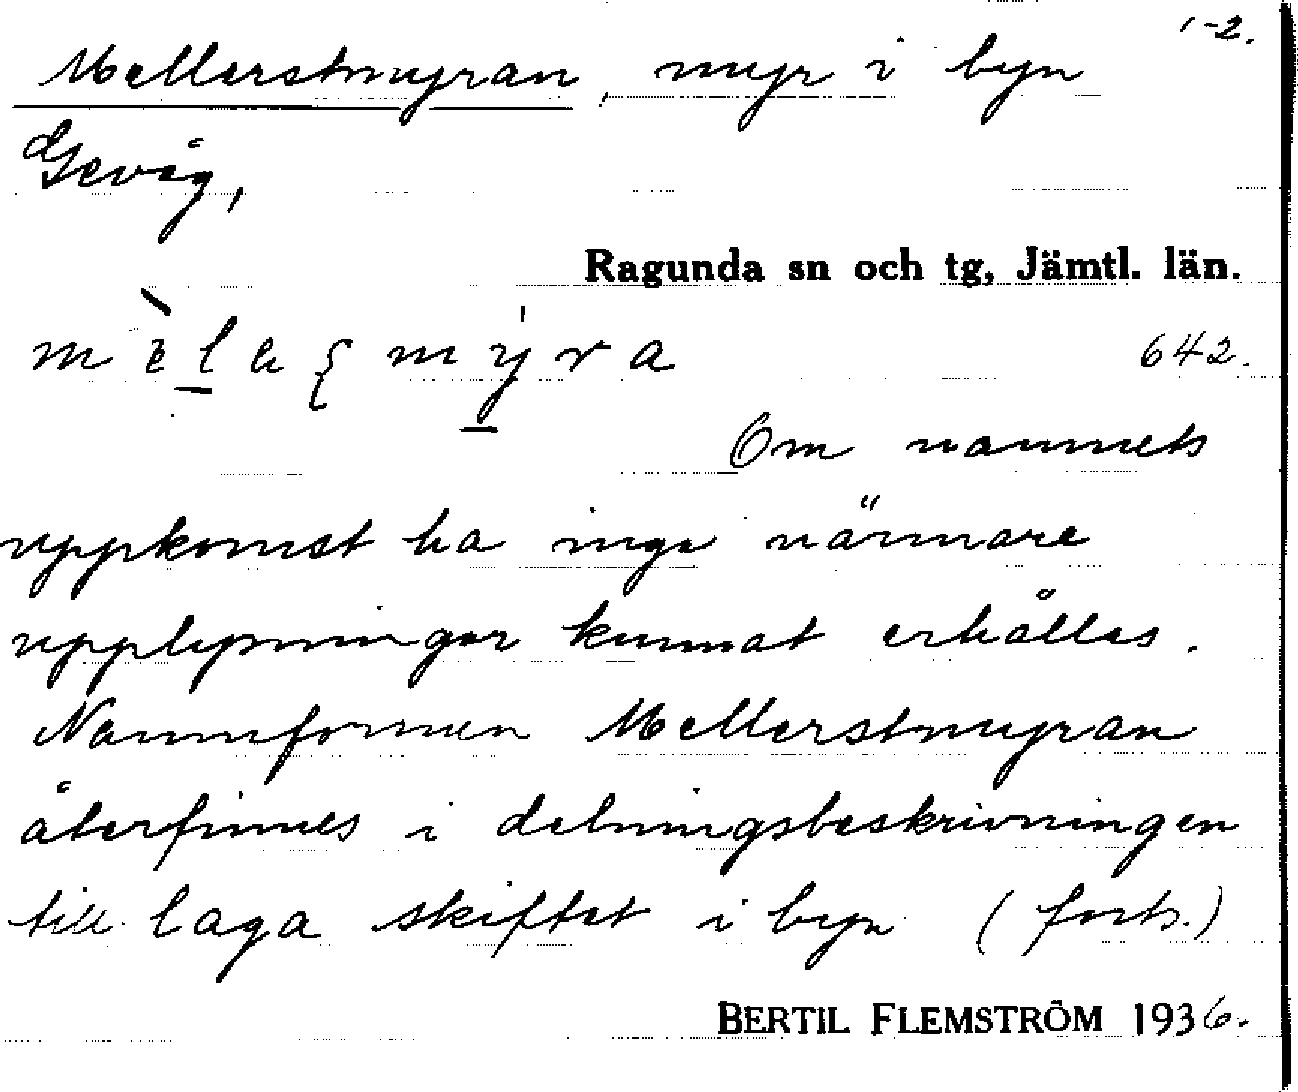 1-2.
Mellerstmyran, myr i byn
Gevåg,
Ragunda sn och tg, Jämtl. län.
642.
Om namnets
uppkomst ha inga närmare
upplysningar kunnat erhållas.
Namnformen Mellerstmyran
återfinnes i delningsbeskrivningen
till laga skiftet i byn (forts.)
BERTIL FLEMSTRÖM 1936.